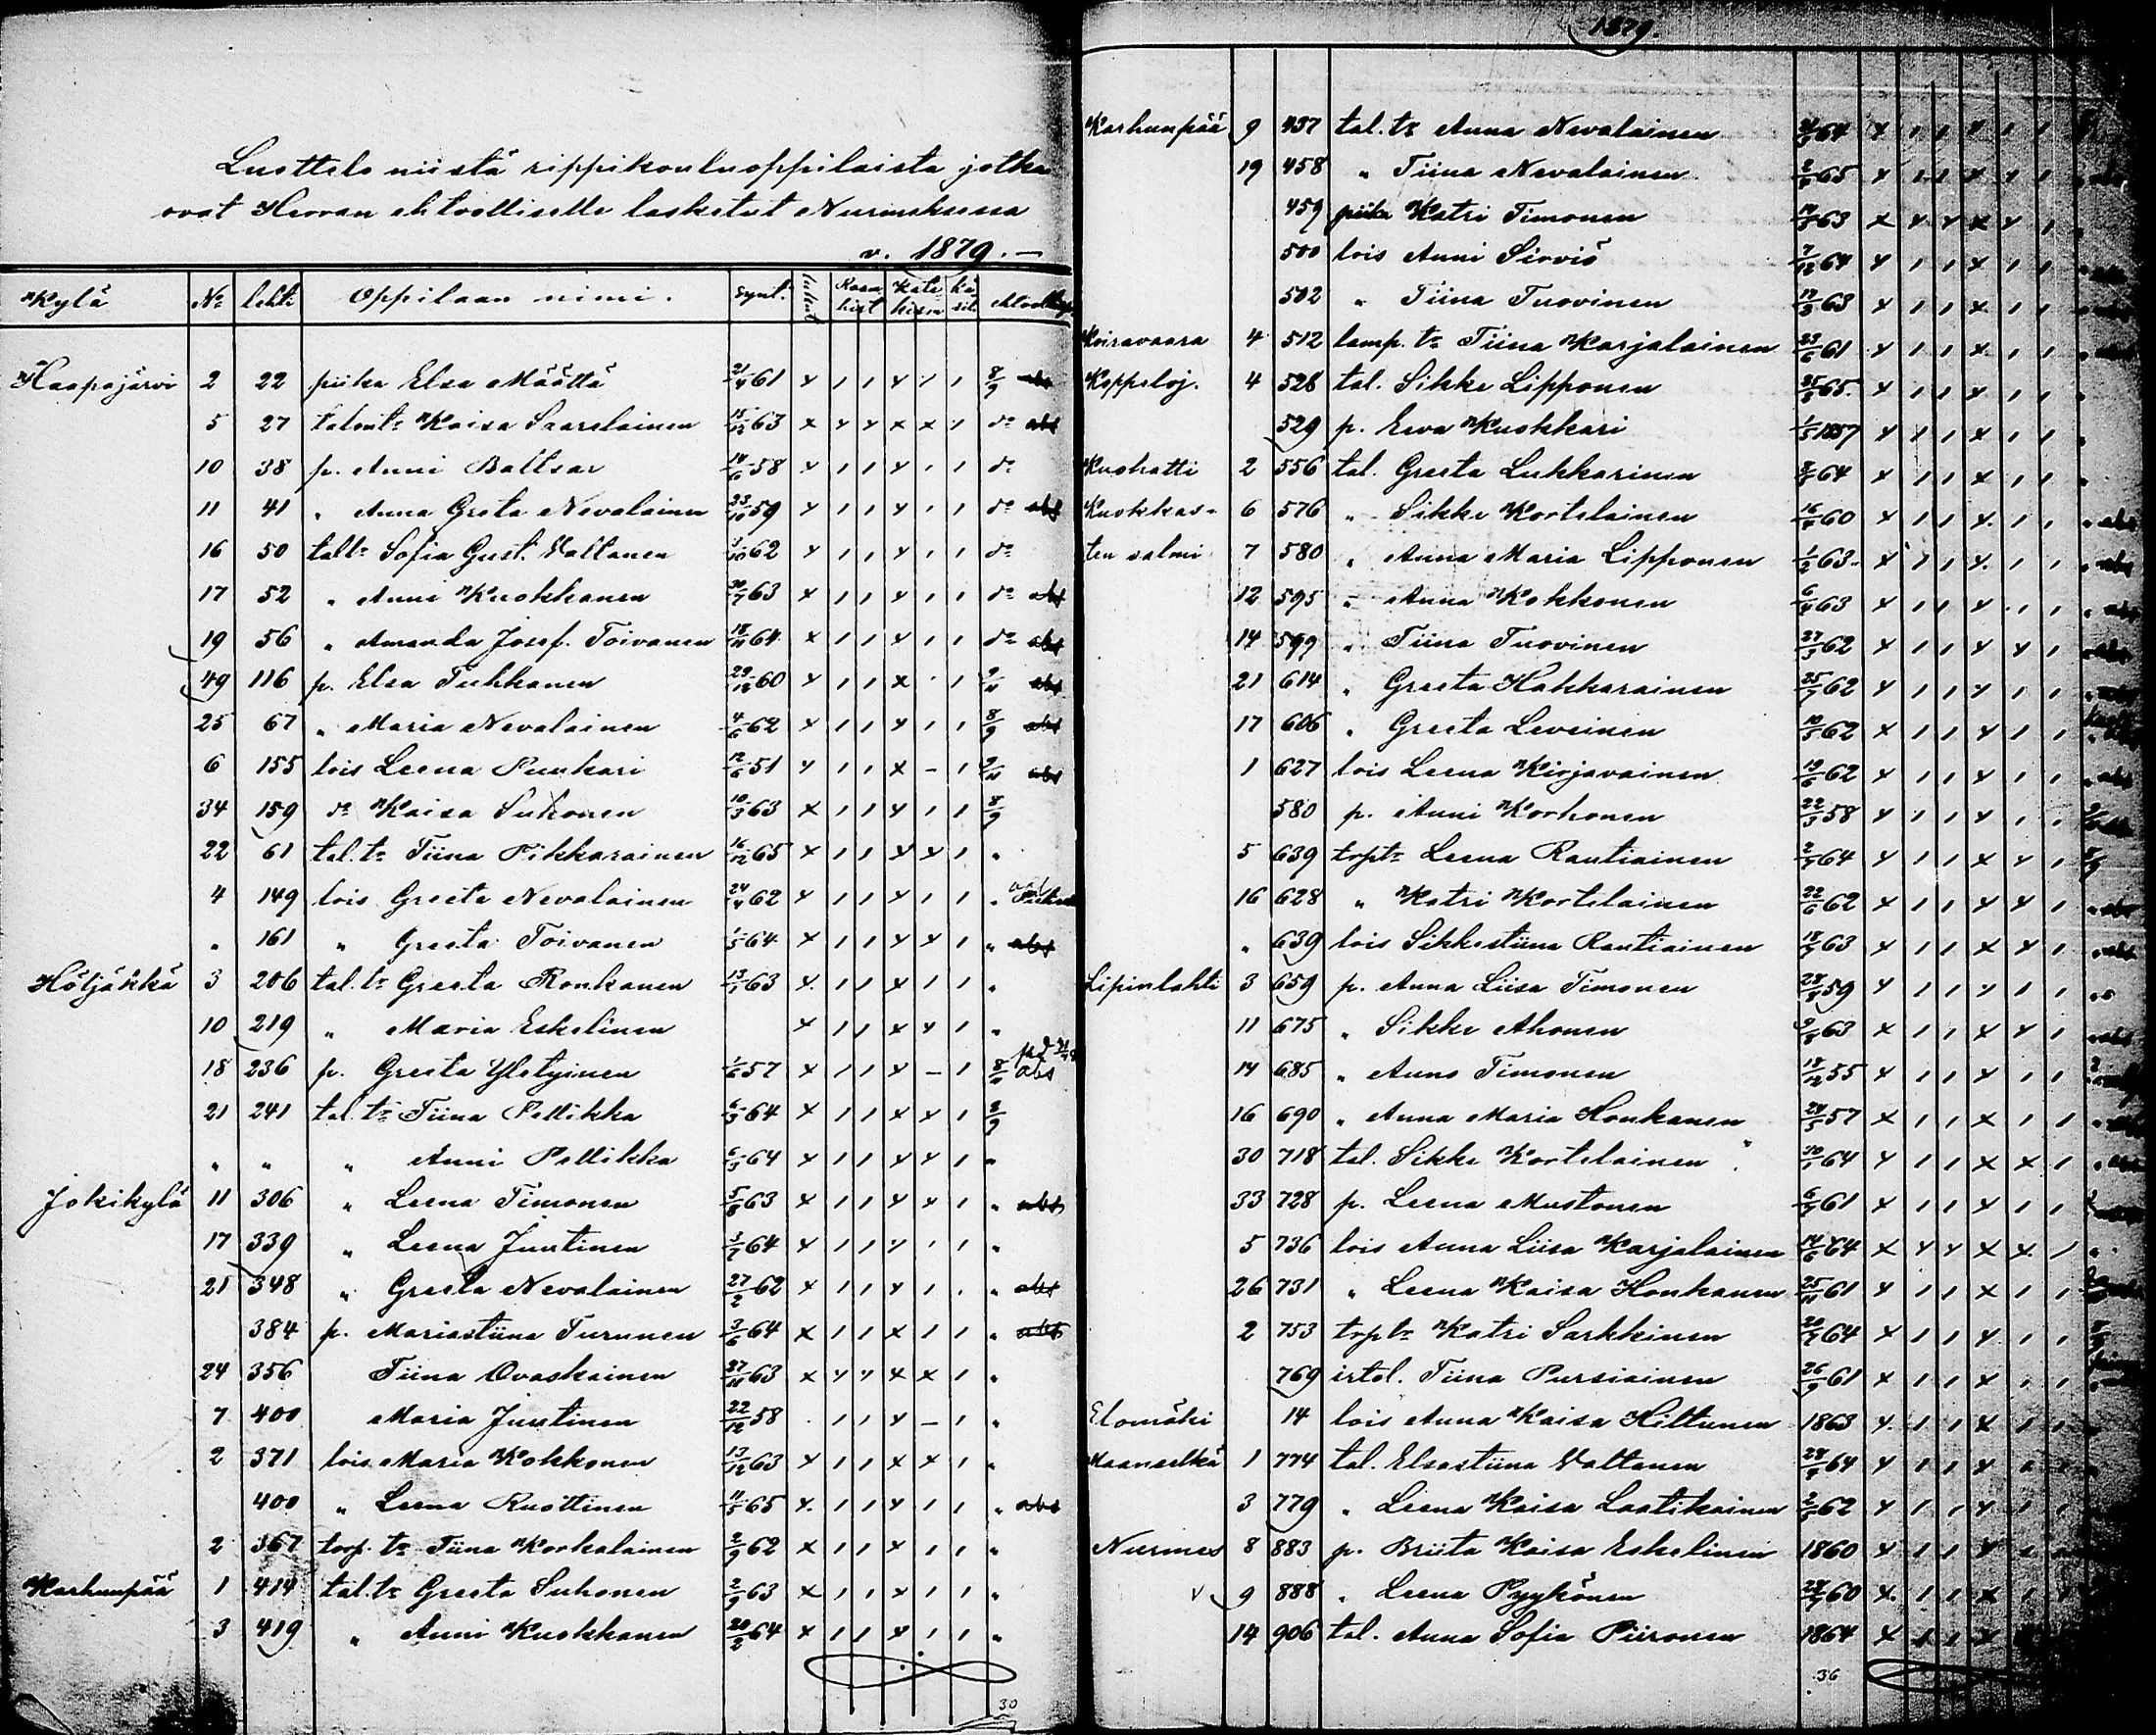 Luettelo niistä rippikouluoppilaista jotka
ovat Herran ehtoolliselle lasketut Nurmeksessa
v. 1879.—
Kylä № lehti Oppilaan nimi. Synt. Raam hist Kate kism ehtooll
Haapajärvi 2 22 piika Elsa Määttä 21/4 61 x 1 1 x 1 1 8/9
5 27 talont:r Kaisa Saarelainen 15/12 63 x x x x x x d:o abs
10 38 p. Anni Baltsar 14/6 58 x 1 1 x 1 1 d:o
11 41 " Anna Greta Nevalainen 23/10 59 x 1 1 x 1 1 d:o abs
16 50 talt:r Sofia Gust. Valtanen 3/10 62 x 1 1 x 1 1 d:o
17 52 " Anni Kuokkanen 30/7 63 x 1 1 x 1 1 d:o abs
19 56 " Amanda Josef. Toivanen 18/11 64 x 1 1 x 1 1 d:o abs
49 116 p. Elsa Tuhkanen 29/12 60 x 1 1 x 1 abs
25 67 " Maria Nevalainen 4/6 62 x 1 1 x 1 1 8/9 abs
6 155 lois Leena Puukari 12/6 51 x 1 1 x – 1 abs
34 159 d:o Kaisa Suhonen 10/3 63 x 1 1 x 1 1 8/9
22 61 tal.t:r Tiina Pikkarainen 16/12 65 x 1 1 x x 1 "
4 149 lois Greeta Nevalainen 24/4 62 x 1 1 x 1 1 "
" 161 " Greeta Toivanen 1/5 64 x 1 1 x x 1 " abs
Höljäkkä 3 206 tal.t:r Greeta Ronkanen 13/1 63 x 1 1 x 1 1 "
10 219 " Maria Eskelinen x 1 1 x x 1 "
18 236 p. Greeta Yletyinen 1/6 57 x 1 1 x – 1 abs
21 241 tal.t:r Tiina Pellikka 6/3 64 x 1 1 x x 1 8/9
" " " Anni Pellikka 6/3 64 x 1 1 x x 1 "
Jokikylä 11 306 " Leena Timonen 5/8 63 x 1 1 x x 1 " abs
17 339 " Leena Juutinen 3/7 64 x 1 1 x 1 1 "
21 348 " Greeta Nevalainen 27/2 62 x 1 1 x 1 . " abs
384 p. Mariastiina Turunen 3/6 64 x 1 1 x 1 1 " abs
24 356 Tiina Ovaskainen 27/11 63 x x x x x 1 "
7 400 Maria Juutinen 22/12 58 1 1 x – 1 "
2 371 lois Maria Kokkonen 13/12 63 x 1 1 x x 1 "
400 " Leena Ruottinen 11/5 65 x 1 1 x 1 1 " abs
2 367 torp.t:r Tiina Korkalainen 2/9 62 x 1 1 x 1 1 "
Karhunpää 1 414 tal.t:r Greeta Suhonen 2/9 63 x 1 1 x 1 1 "
3 419 " Anni Kuokkanen 20/2 64 x 1 1 x 1 1 "
30
1879.
Karhunpää 9 437 tal.t:r Anna Nevalainen 64 x 1 1 x 1 1
19 458 " Tiina Nevalainen 65 x 1 1 x x 1
459 piika Katri Timonen 63 x x x x x 1
500 lois Anni Sirviö 7/12 64 x 1 1 x 1 1
502 " Tiina Tuovinen 17/3 63 x 1 1 x 1 1
Koiravaara 4 512 lamp.t:r Tiina Karjalainen 23/6 61 x 1 1 x 1 1
Koppeloj. 4 526 tal. Sikke Lipponen 65 x 1 1 x 1 1
529 p. Eeva Kuokkari 1/5 1857 x 1 1 x 1 1
Kuohatti 2 556 tal. Greeta Lukkarinen 64 x 1 1 x 1 1
Kuokkas- 6 576 " Sikke Kortelainen 60 x 1 1 x 1 1 abs
ten salmi 7 580 " Anna Maria Lipponen 1/2 63 x 1 1 x 1 1
12 595 " Anna Kokkonen 63 x 1 1 x 1 1
14 599 " Tiina Tuovinen 27/3 62 x 1 1 x x 1
21 614 " Greeta Hakkarainen 25/7 62 x 1 1 x 1 1
17 606 " Greeta Leveinen 10/5 62 x 1 1 x 1 1
1 627 lois Leena Kirjavainen 19/6 62 x 1 1 x 1 1
580 p. Anni Korhonen 22/3 58 x 1 1 x 1 1
5 639 torpt:r Leena Rautiainen 64 x 1 1 x x 1
16 628 " Katri Kortelainen 22/6 62 x 1 1 x x 1
" 639 lois Sikkestiina Rautiainen 18/7 63 x 1 1 x x 1
Lipinlahti 3 659 p. Anna Liisa Timonen 59 x 1 1 x 1 1
11 675 " Sikke Ahonen 63 x 1 1 x x 1
14 685 " Anna Timonen 13/12 55 x 1 1 x 1 1
16 690 " Anna Maria Honkanen 24/5 57 x 1 1 x 1 1
30 718 tal. Sikke Kortelainen 30/1 64 x 1 1 x x 1
33 728 p. Leena Mustonen 61 x 1 1 x 1 1
5 736 lois Anna Liisa Karjalainen 14/6 64 x x x x x 1
26 731 " Leena Kaisa Honkanen 25/11 61 x 1 1 x 1 1
2 753 torpt:r Katri Sarkkinen 64 x 1 1 x 1 1
769 irtol. Tiina Pursiainen 26/9 61 x 1 1 x 1 1
Elomäki 14 lois Anna Kaisa Hiltunen 1863 x 1 1 x 1 1
Maanselkä 1 774 tal. Elsastiina Valtanen 64 x 1 1 x
3 779 " Leena Kaisa Laatikainen 62 x 1 1 x
Nurmes 8 883 p. Briita Kaisa Eskelinen 1860 x 1 1 x
9 888 " Leena Pyykönen 60 x 1 1 x
14 906 tal. Anna Sofia Piironen 1864 x 1 1 x
36